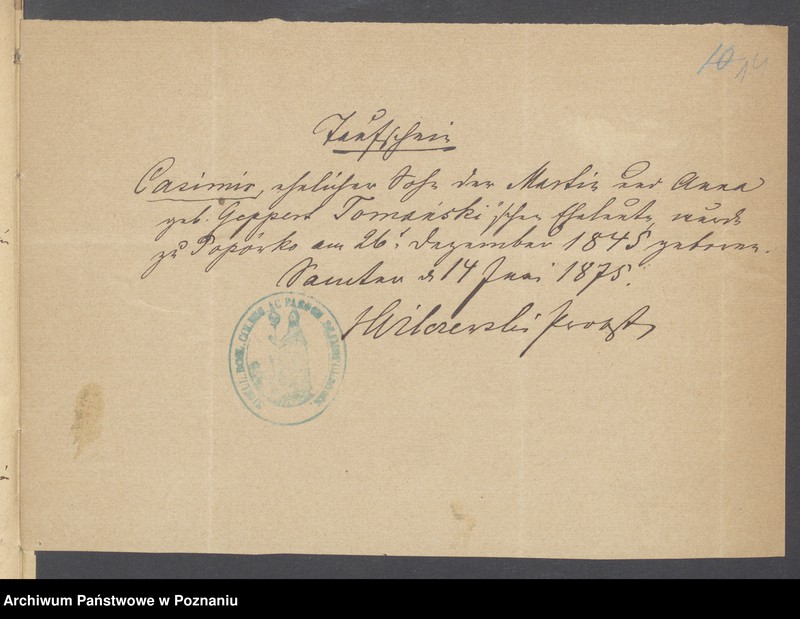 10 14
Taufschein
Casimir, ehelicher Sohn der Martin und Anna
geb. Geppert Tomański'schen Eheleute, wurde
zu Popòrko am 26t. Dezember 1845 geboren.
Samter d 14 Juni 1875.
Wilczewski Probst
Archiwum Państwowe w Poznaniu